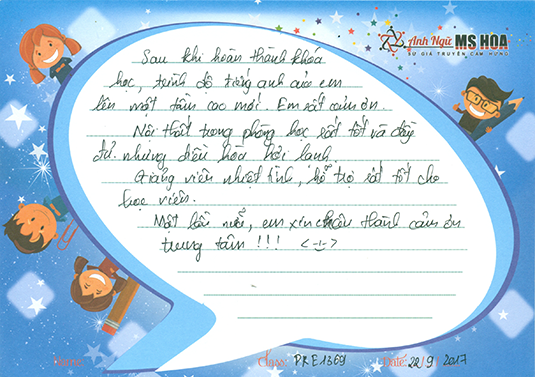 Anh Ngữ MS HOA
SỨ GIẢ TRUYỀN CẢM HỨNG
Sau khi hoàn thành khóa
học, trình độ tiếng anh của em
lên một tầm cao mới. Em rất cảm ơn.
Nội thất trong phòng học rất tốt và đầy
đủ nhưng điều hòa hơi lạnh
Giảng viên nhiệt tình, hỗ trợ rất tốt cho
học viên.
Một lần nữa, em xin chân thành cảm ơn
trung tâm !!! <-:->
Name:
Class: PRE1369
Date: 22/9/2017